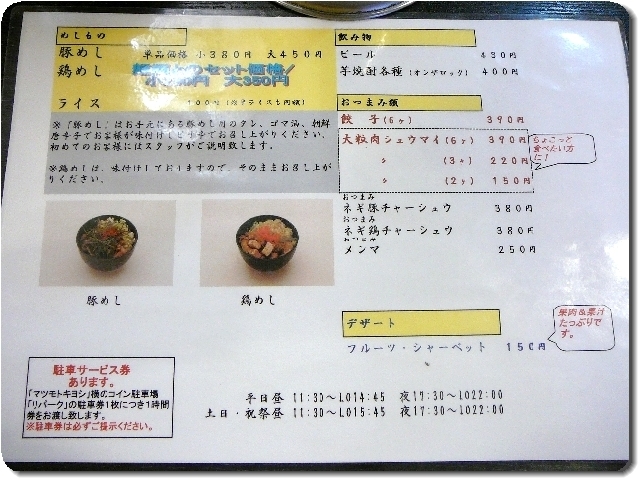 めしもの
豚めし 単品価格 小380円 大450円
鶏めし 麺類とのセット価格/
小280円 大350円
ライス 100円
※「豚めし」はお手元にある豚めし用のタレ、ゴマ油、朝鮮
唐辛子でお客様が味付けしてお召し上がりください。
初めてのお客様にはスタッフがご説明致します。
※鶏めしは、味付けしておりますので、そのままお召し上
がりください。
豚めし
鶏めし
駐車サービス券
あります。
「マツモトキヨシ」横のコイン駐車場
「リパーク」の駐車券1枚につき1時間
券をお渡し致します。
※駐車券は必ずご提示ください。
飲み物
ビール 430円
芋焼酎各種(オンザロック) 400円
おつまみ類
餃 子(6ヶ) 390円
大粒肉シュウマイ(6ヶ) 390円
〃 (3ヶ) 220円
〃 (2ヶ) 150円
ちょこっと
食べたい方
に!
おつまみ
ネギ豚チャーシュウ 380円
おつまみ
ネギ鶏チャーシュウ 380円
おつまみ
メンマ 250円
デザート
フルーツ・シャーベット 150円
果肉&果汁
たっぷりで
す。
平日昼 11:30〜LO14:45 夜17:30〜LO22:00
土日・祝祭昼 11:30〜LO15:45 夜17:30〜LO22:00